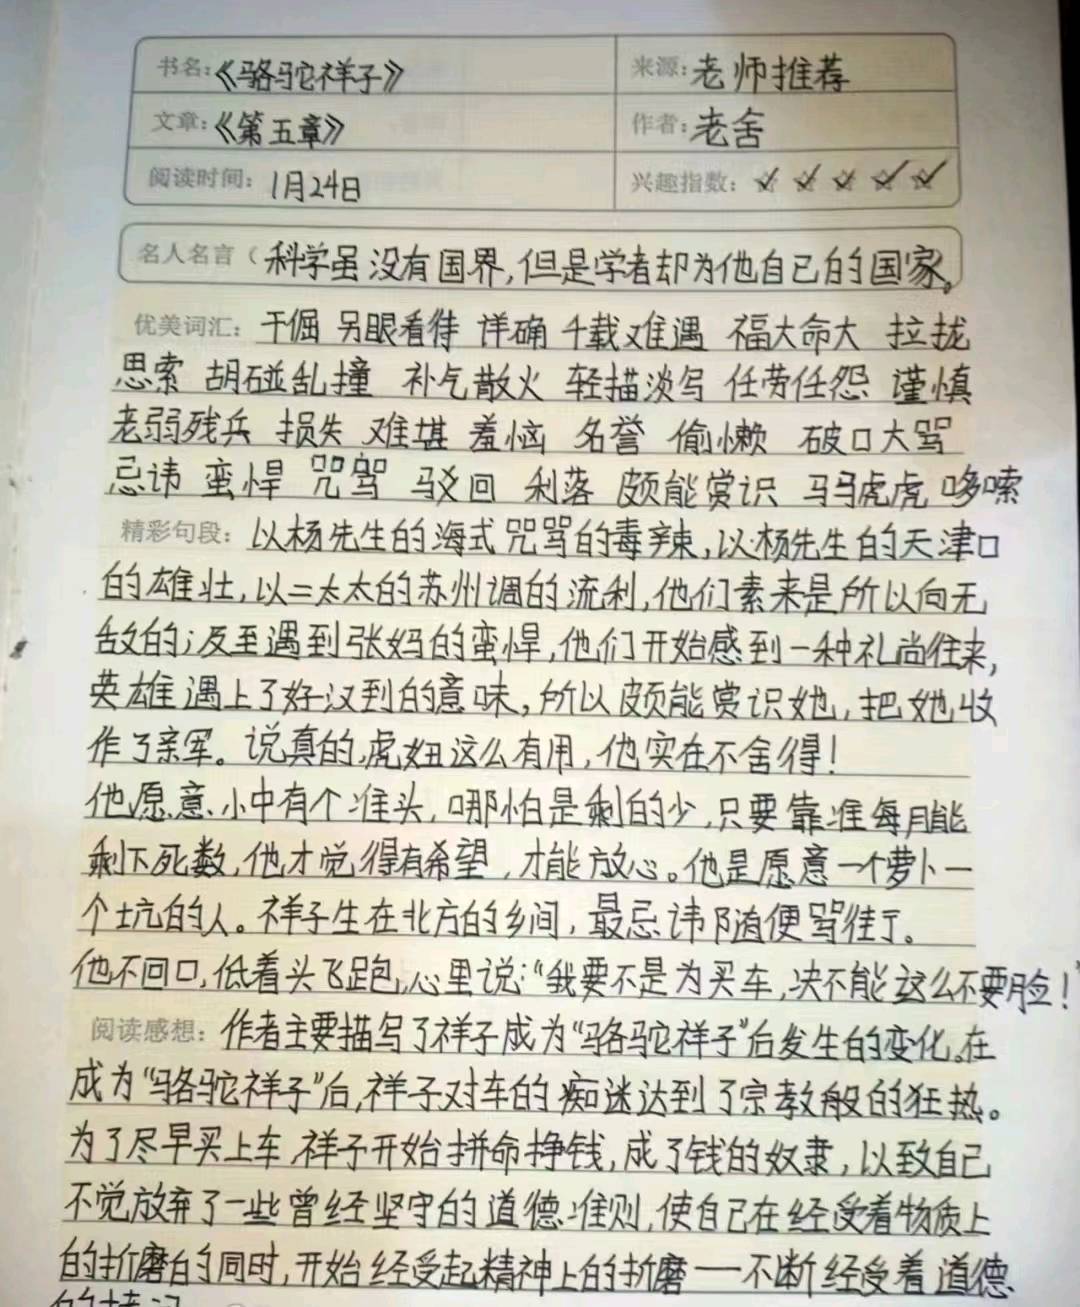 书名:《骆驼祥子》 来源:老师推荐
文章:《第五章》 作者:老舍
阅读时间: 1月24日 兴趣指数:
名人名言( 科学虽没有国界,但是学者却为他自己的国家。
优美词汇: 干倔 另眼看待 详确 千载难遇 福大命大 拉拢
思索 胡碰乱撞 补气散火 轻描淡写 任劳任怨 谨慎
老弱残兵 损失 难堪 羞恼 名誉 偷懒 破口大骂
忌讳 蛮悍 咒骂 驳回 利落 颇能赏识 马马虎虎 哆嗦
精彩句段: 以杨先生的海式咒骂的毒辣,以杨先生的天津口
的雄壮,以二太太的苏州调的流利,他们素来是所以向无
敌的;及至遇到张妈的蛮悍,他们开始感到一种礼尚往来,
英雄遇上了好汉到的意味,所以颇能赏识她,把她收
作了亲军。说真的,虎妞这么有用,他实在不舍得!
他愿意小中有个准头,哪怕是剩的少,只要靠准每月能
剩下死数,他才觉得有希望,才能放心。他是愿意一个萝卜一
个坑的人。祥子生在北方的乡间,最忌讳随便骂街。
他不回口,低着头飞跑,心里说:“我要不是为买车,决不能这么不要脸!”
阅读感想: 作者主要描写了祥子成为“骆驼祥子”后发生的变化。在
成为“骆驼祥子”后,祥子对车的痴迷达到了宗教般的狂热。
为了尽早买上车,祥子开始拼命挣钱,成了钱的奴隶,以致自己
不觉放弃了一些曾经坚守的道德准则,使自己在经受着物质上
的折磨的同时,开始经受起精神上的折磨——不断经受着道德